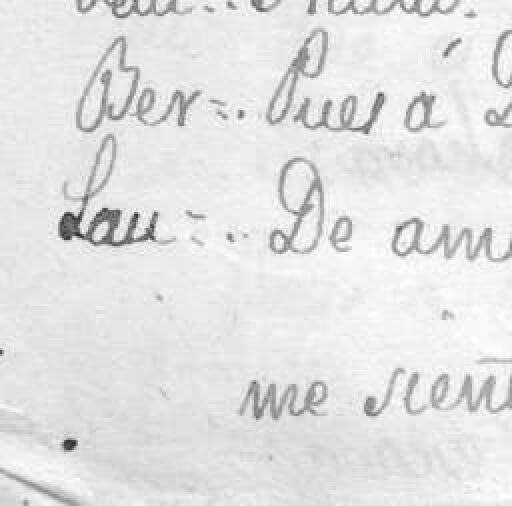 Ber=. Pues á
Lau=.. De am
me sient